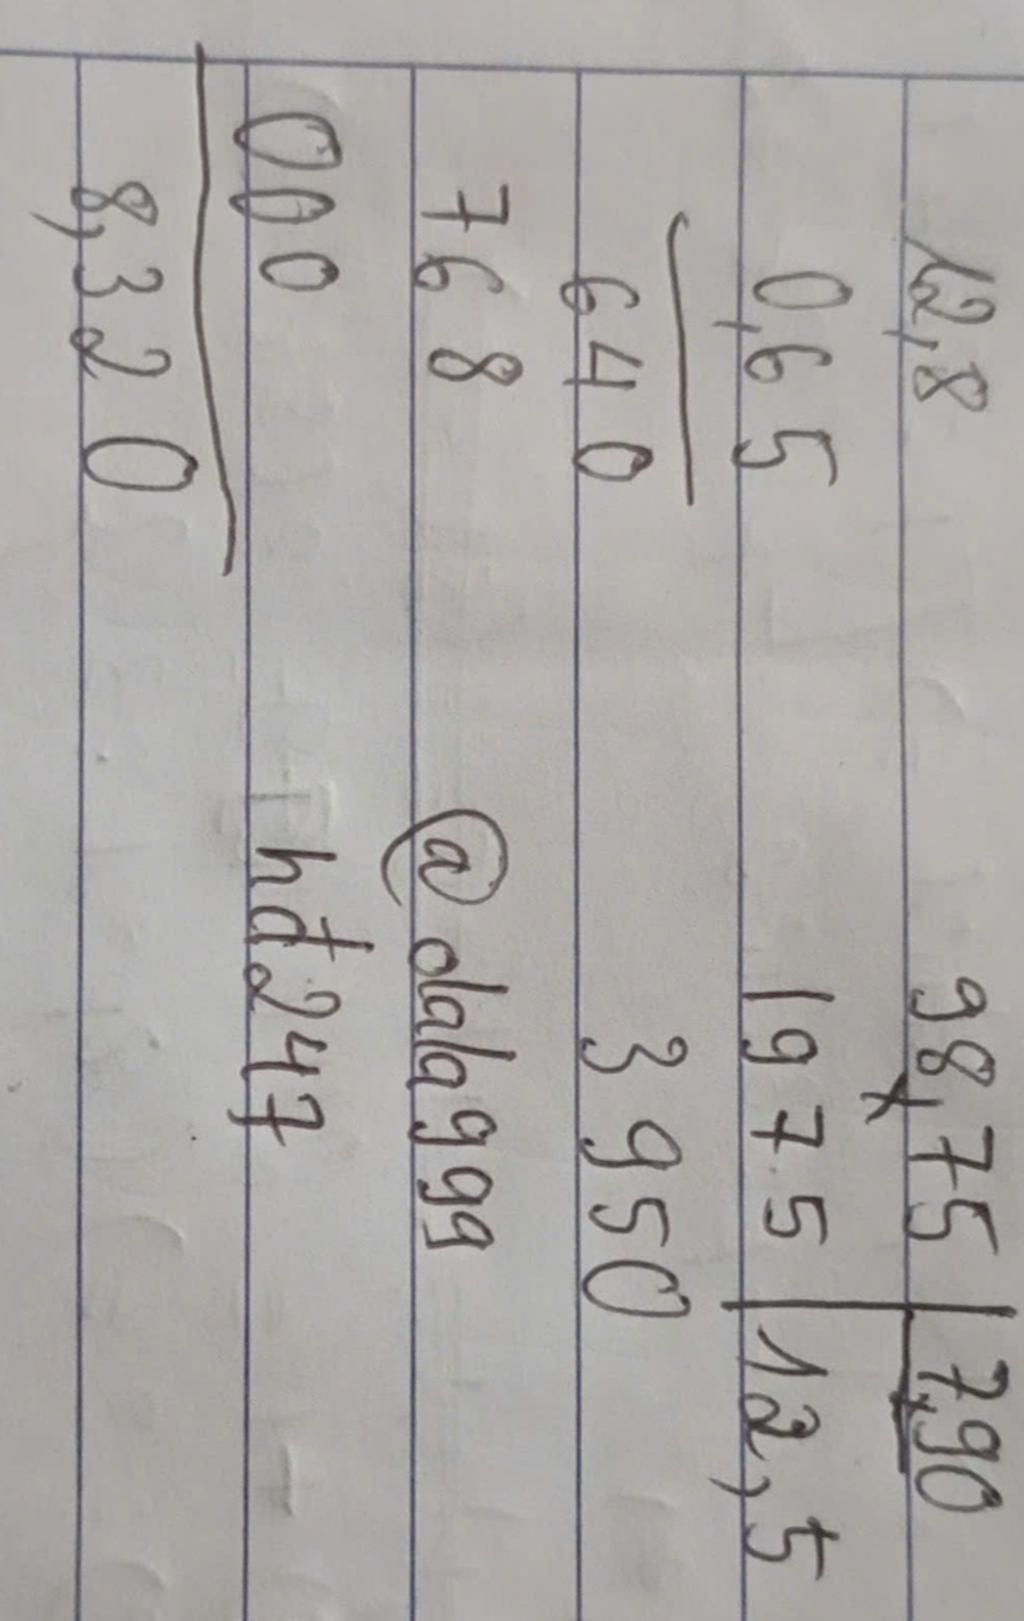 12,8
0,65
640
768
000
8,320
98,75 | 7,90
1975 | 12,5
3950
@dalaggg
hd247